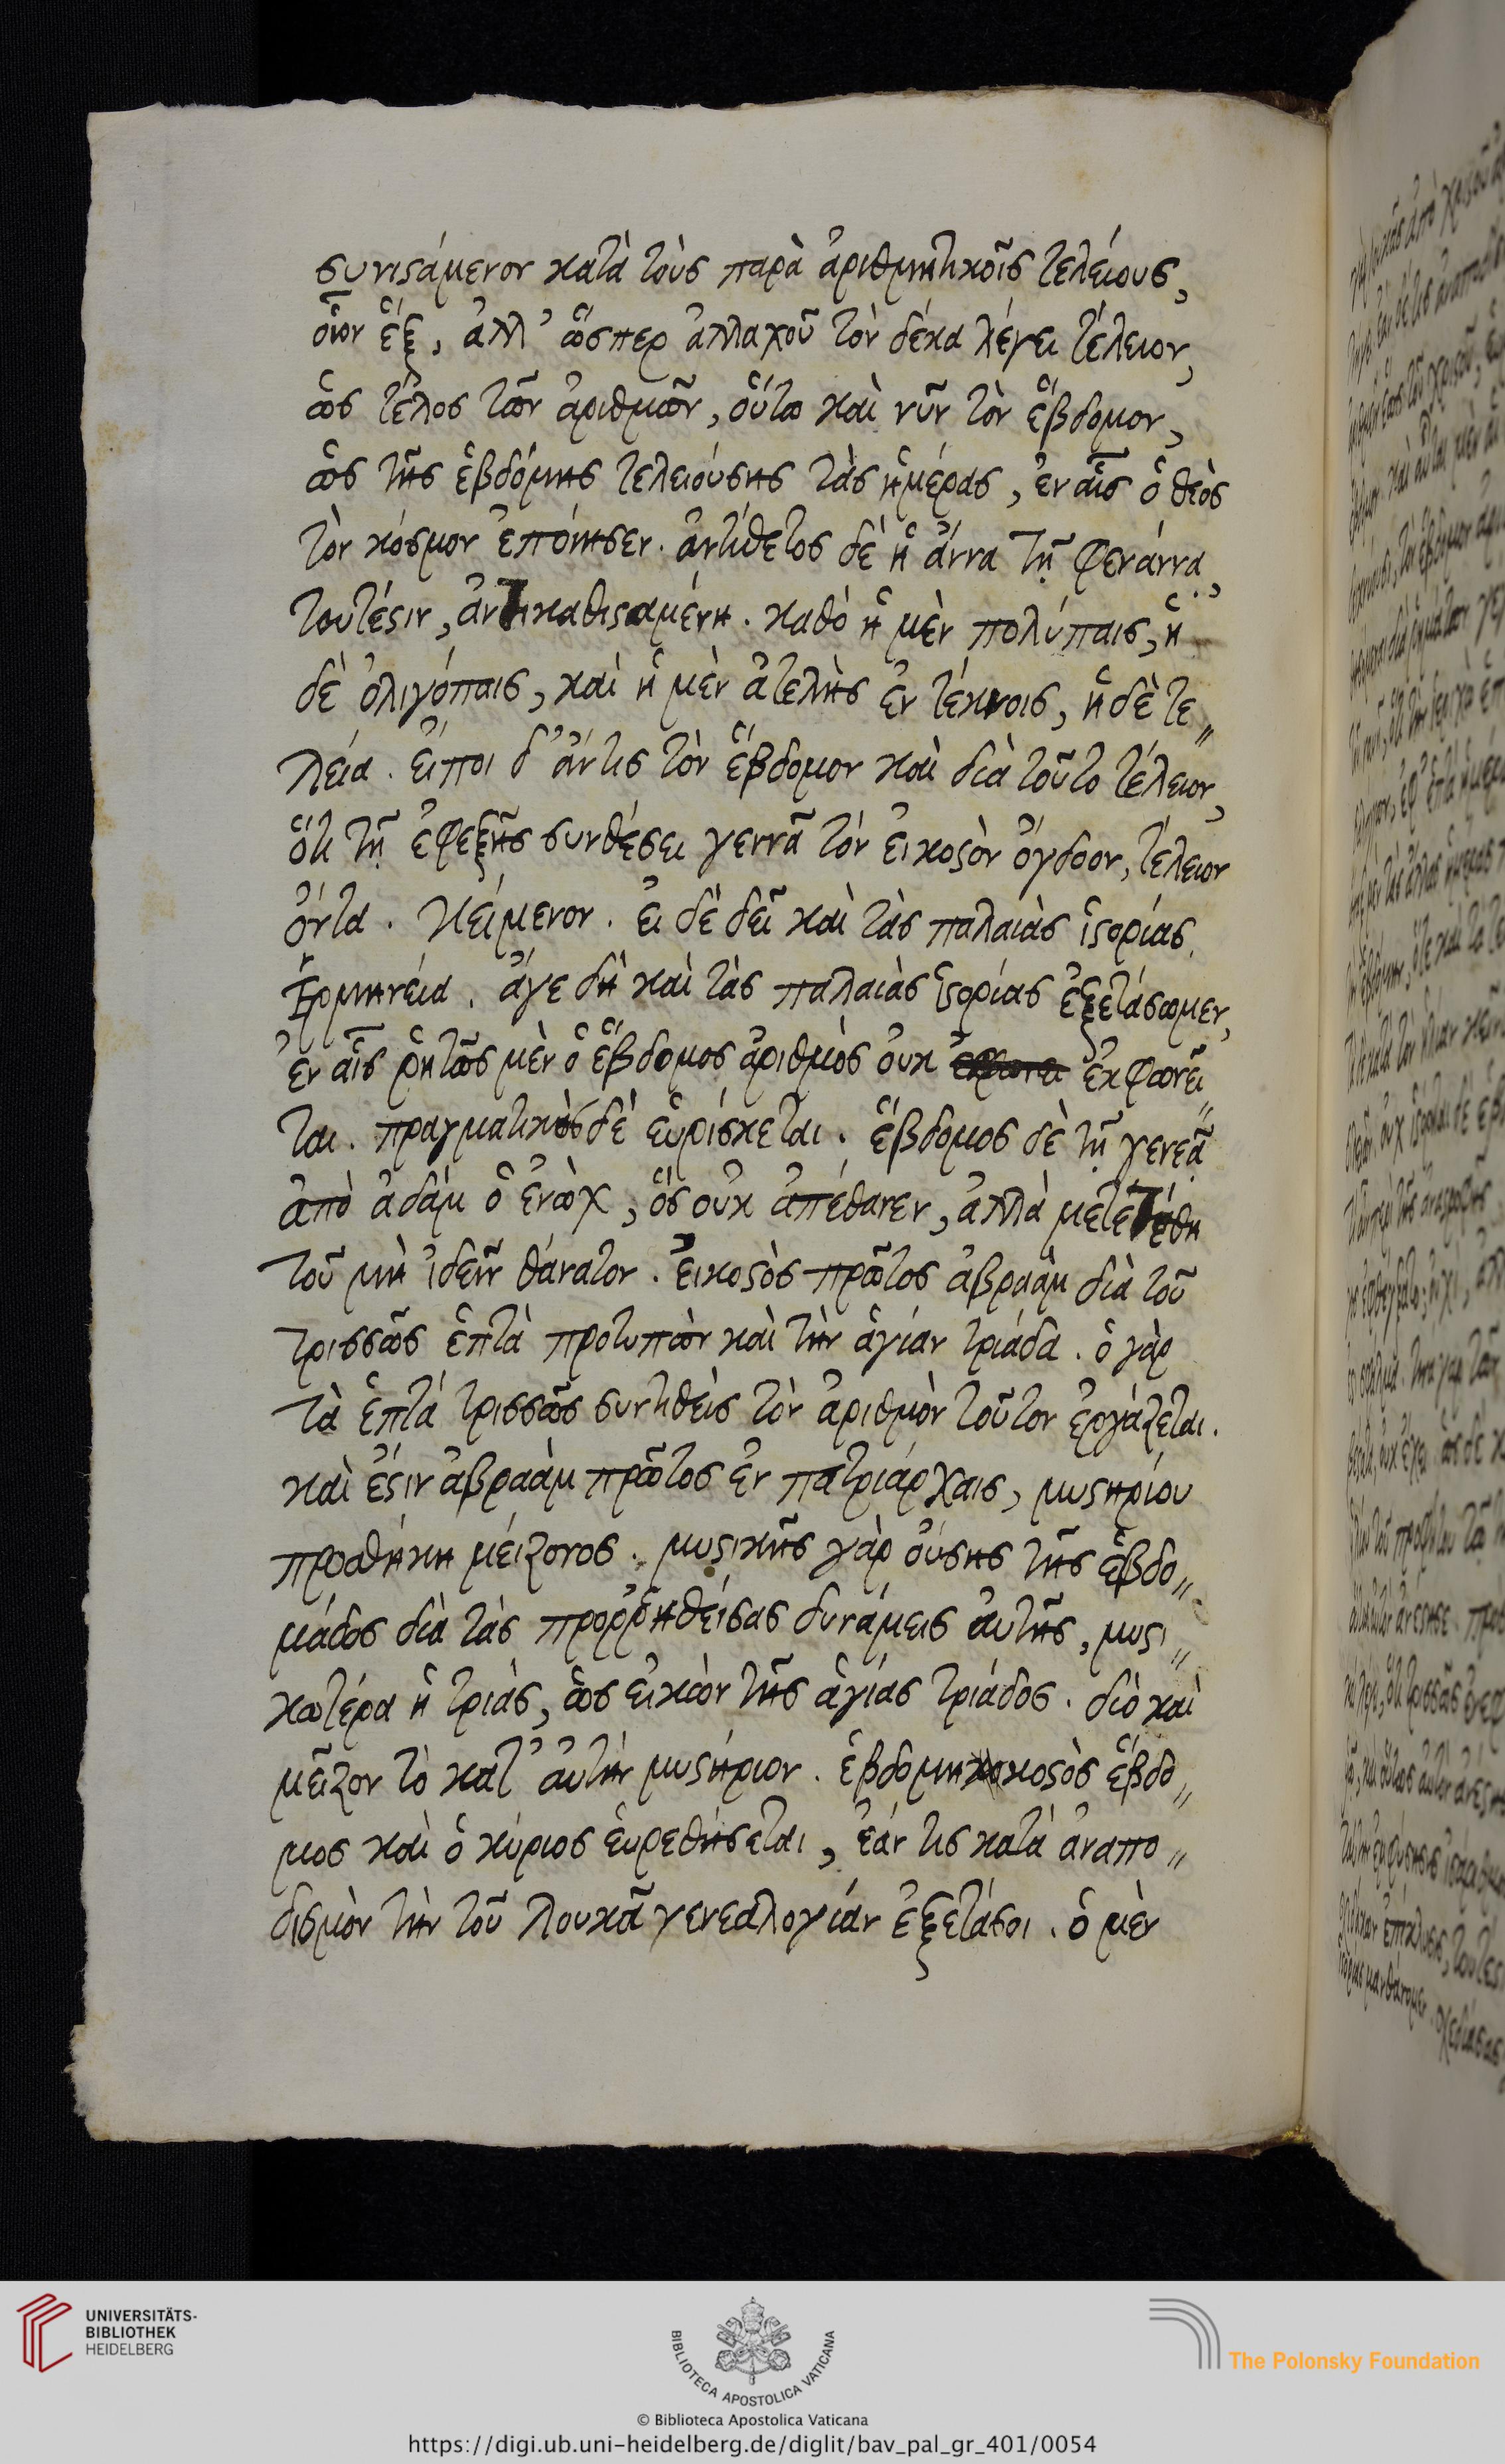 συνιστάμενον κατὰ τοὺς παρὰ ἀριθμητικοῖς τελείους,
οἷον ἓξ, ἀλλ' ὥσπερ ἀλλαχοῦ τὸν δέκα λέγει τέλειον,
ὡς τέλος τῶν ἀριθμῶν, οὕτω καὶ νῦν τὸν ἕβδομον,
ὡς τῆς ἑβδόμης τελειούσης τὰς ἡμέρας, ἐν αἷς ὁ θεὸς
τὸν κόσμον ἐποίησεν. ἀντίθετος δὲ ἡ ἄννα τῇ φενάννᾳ,
τουτέστιν, ἀντικαθισταμένη. καθὸ ἡ μὲν πολύπαις, ἡ
δὲ ὀλιγόπαις, καὶ ἡ μὲν ἀτελὴς ἐν τέκνοις, ἡ δὲ τε〃
λεία. εἴποι δ' ἄν τις τὸν ἕβδομον καὶ διὰ τοῦτο τέλειον,
ὅτι τῇ ἐφεξῆς συνθέσει γεννᾶ τὸν εἰκοστὸν ὄγδοον, τέλειον
ὄντα. Κείμενον. εἰ δὲ δεῖ καὶ τὰς παλαιὰς ἱστορίας.
Ἑρμηνεία. ἄγε δὴ καὶ τὰς παλαιὰς ἱστορίας ἐξετάσωμεν,
ἐν αἷς ῥητῶς μὲν ὁ ἕβδομος ἀριθμὸς οὐκ ἐκφωνεῖ〃
ται. πραγματικῶς δὲ εὑρίσκεται. ἕβδομος δὲ τῇ γενεᾷ
ἀπὸ ἀδὰμ ὁ ἐνὼχ, ὃς οὐκ ἀπέθανεν, ἀλλὰ μετετέθη
τοῦ μὴ ἰδεῖν θάνατον. εἰκοστὸς πρῶτος ἀβραὰμ διὰ τοῦ
τρισσῶς ἑπτὰ προτυπῶν καὶ τὴν ἁγίαν τριάδα. ὁ γὰρ
τὰ ἑπτὰ τρισσῶς συντιθεὶς τὸν ἀριθμὸν τοῦτον ἐργάζεται.
καὶ ἔστιν ἀβραὰμ πρῶτος ἐν πατριάρχαις, μυστηρίου
προσθήκη μείζονος. μυστικῆς γὰρ οὔσης τῆς ἑβδο〃
μάδος διὰ τὰς προρρηθείσας δυνάμεις αὐτῆς, μυστι〃
κωτέρα ἡ τριὰς, ὡς εἰκὼν τῆς ἁγίας τριάδος. διὸ καὶ
μεῖζον τὸ κατ' αὐτὴν μυστήριον. ἑβδομηκοστὸς ἕβδο〃
μος καὶ ὁ κύριος εὑρεθήσεται, ἐάν τις κατὰ ἀναπο〃
δισμὸν τὴν τοῦ λουκᾶ γενεαλογίαν ἐξετάσοι. ὁ μὲν
UNIVERSITÄTS-
BIBLIOTHEK
HEIDELBERG
BIBLIOTECA APOSTOLICA VATICANA
The Polonsky Foundation
© Biblioteca Apostolica Vaticana
https://digi.ub.uni-heidelberg.de/diglit/bav_pal_gr_401/0054